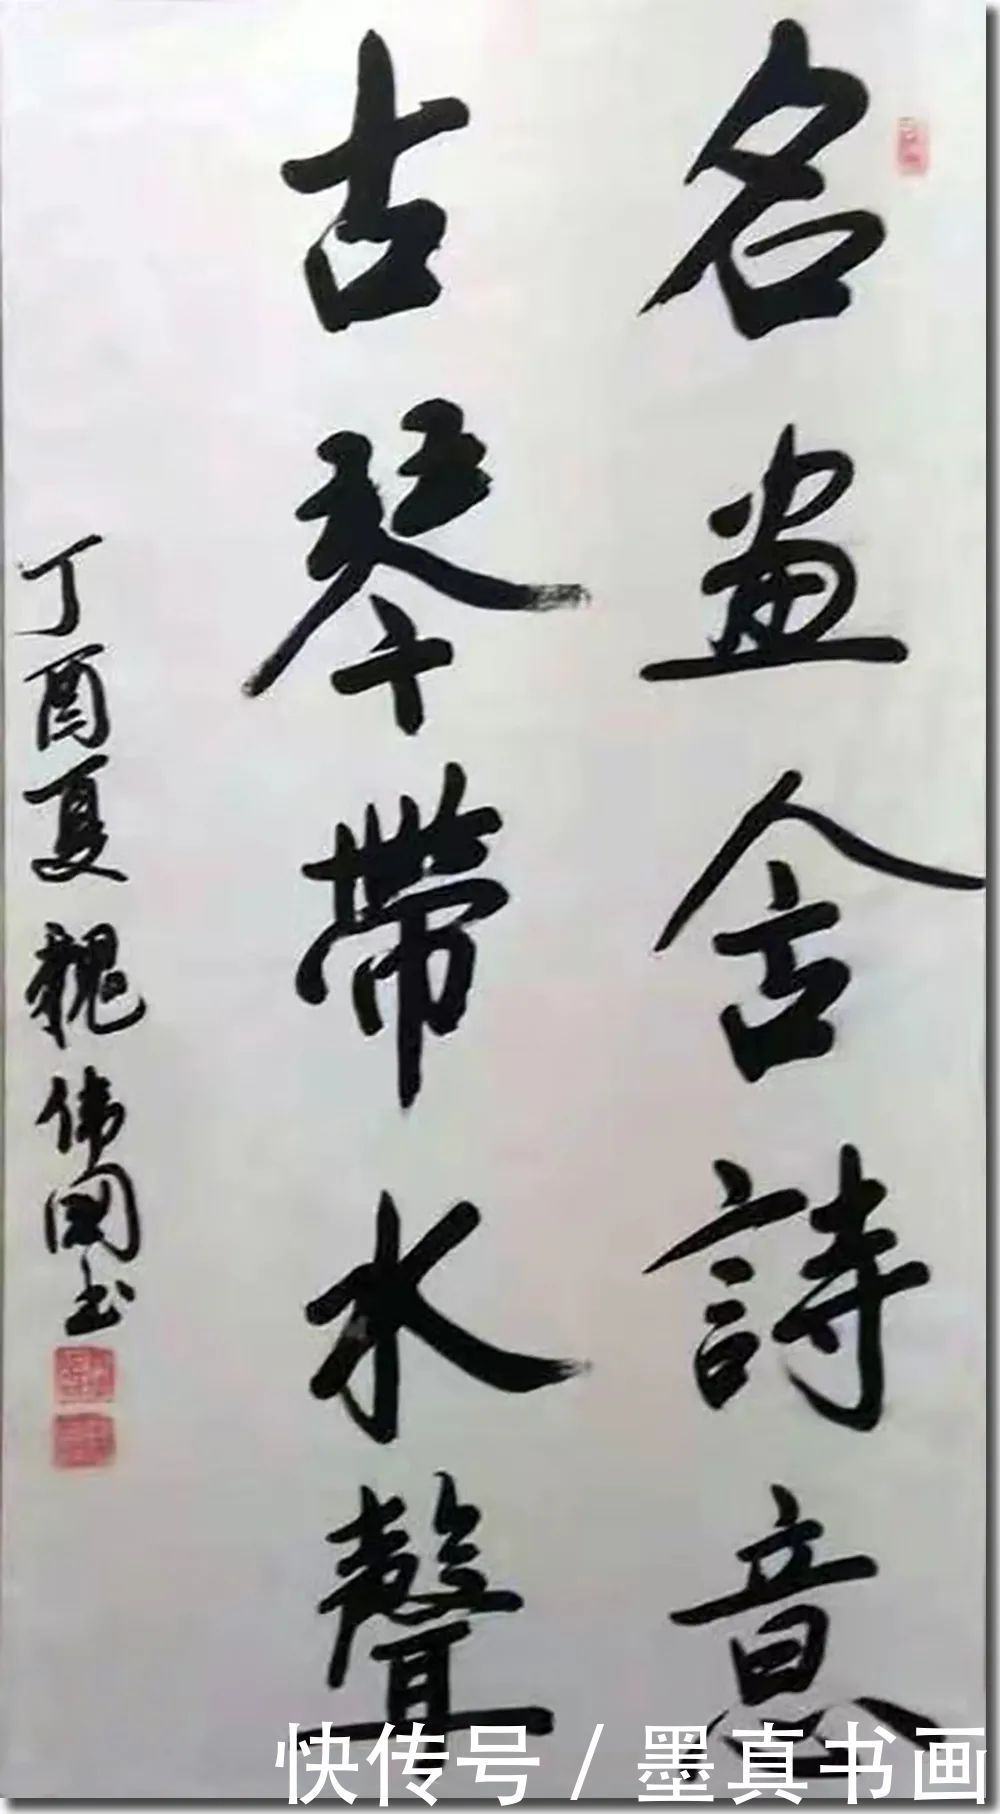 名畫舍詩意
古琴帶水聲
丁酉夏 魏伟國书
快传号 / 墨真书画